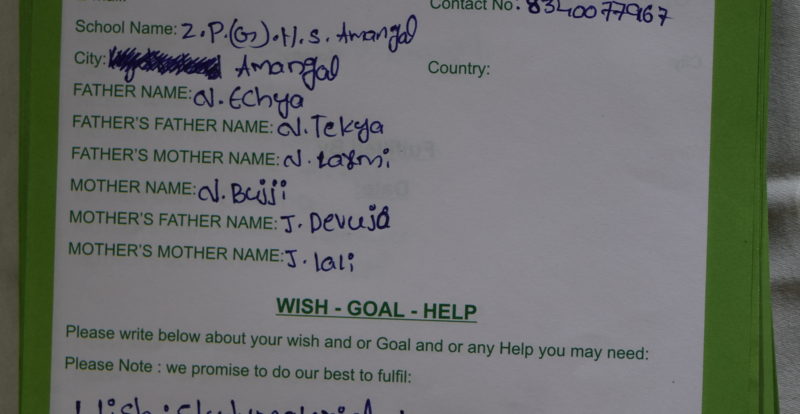 Contact No: 8340077967
School Name: Z.P.(G).H.S. Amangal
City: Amangal Country:
FATHER NAME: N. Echya
FATHER'S FATHER NAME: N. Tekya
FATHER'S MOTHER NAME: N. Laxmi
MOTHER NAME: N. Bujji
MOTHER'S FATHER NAME: J. Devuja
MOTHER'S MOTHER NAME: J. lali
WISH - GOAL - HELP
Please write below about your wish and or Goal and or any Help you may need:
Please Note : we promise to do our best to fulfil:
Wish :